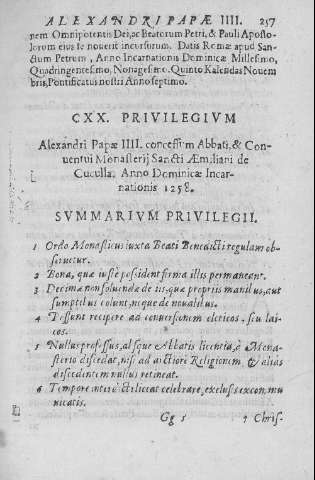 ALEXANDRI PAPÆ IIII. 237
nem Omnipotentis Dei, ac Beatorum Petri, & Pauli Aposto-
lorum eius se nouerit incursurum. Datis Romæ apud San-
ctum Petrum, Anno Incarnationis Dominicæ Millesmo,
Quadringentesimo, Nonagesimo. Quinto Kalendas Nouem
bris, Pontificatus nostri Anno septimo.
CXX. PRIVILEGIVM
Alexandri Papæ IIII. concessum Abbati, & Con-
uentui Monasterij Sancti Æmiliani de
Cuculla. Anno Dominicæ Incar-
nationis 1258.
SVMMARIVM PRIVILEGII.
1 Ordo Monasticus iuxta Beati Benedicti regulam ob-
seruetur.
2 Bona, quæ iustè possident firma illis permaneant.
3 Decimæ non soluendæ de iis, quæ propriis manibus, aut
sumptibus colunt, neque de noualibus.
4 Possunt recipere ad conuersionem clericos, seu lai-
cos.
5 Nullus professus, absque Abbatis licentia, à Mona-
sterio discedat, nisi ad arctiori Religionem, & aliàs
discedentem nullus retineat.
6 Tempore interdicti liceat celebrare, exclusis excommu
nicatis.
Gg 5 7 Chris-